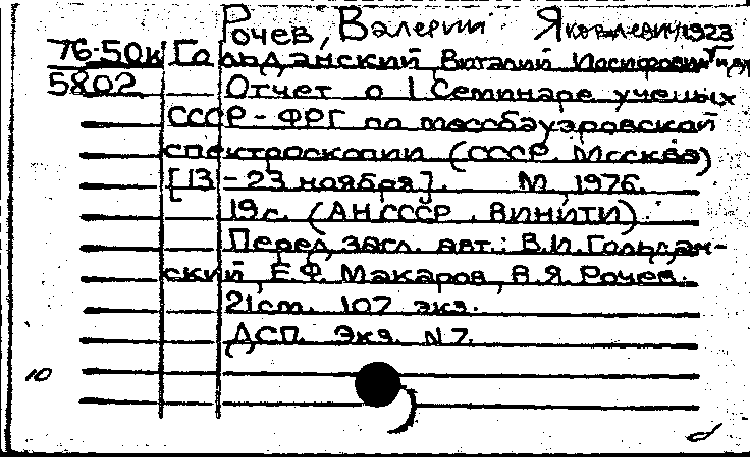 Рочев, Валерий Яковлевич, 1923
76-50к Гольданский Виталий Иосифович и др.
5802 Отчет о I Семинаре ученых
СССР - ФРГ по мессбауэровской
спектроскопии (СССР. Москва)
[13 - 23 ноября]. М., 1976.
19с. (АН СССР. ВИНИТИ).
Перед загл. авт.: В.И. Гольдан-
ский, Е.Ф. Макаров, В.Я. Рочев.
21см. 107 экз.
ДСП. Экз. N 7.
10